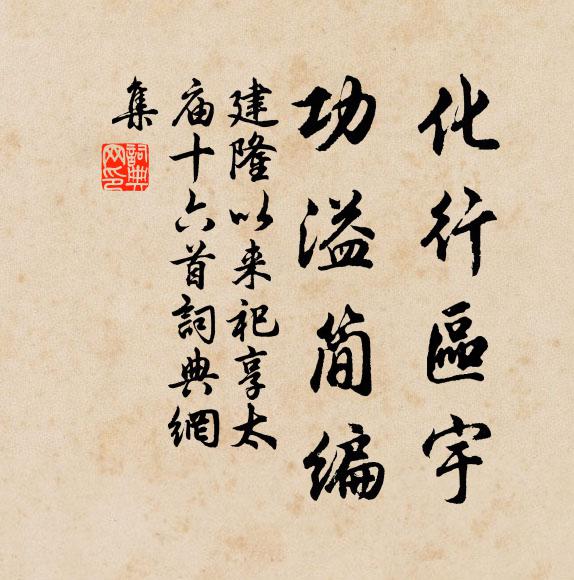 化行區宇
功溢简编
建隆以来祀享太
庙十六首詞典網
集
詞典
网印